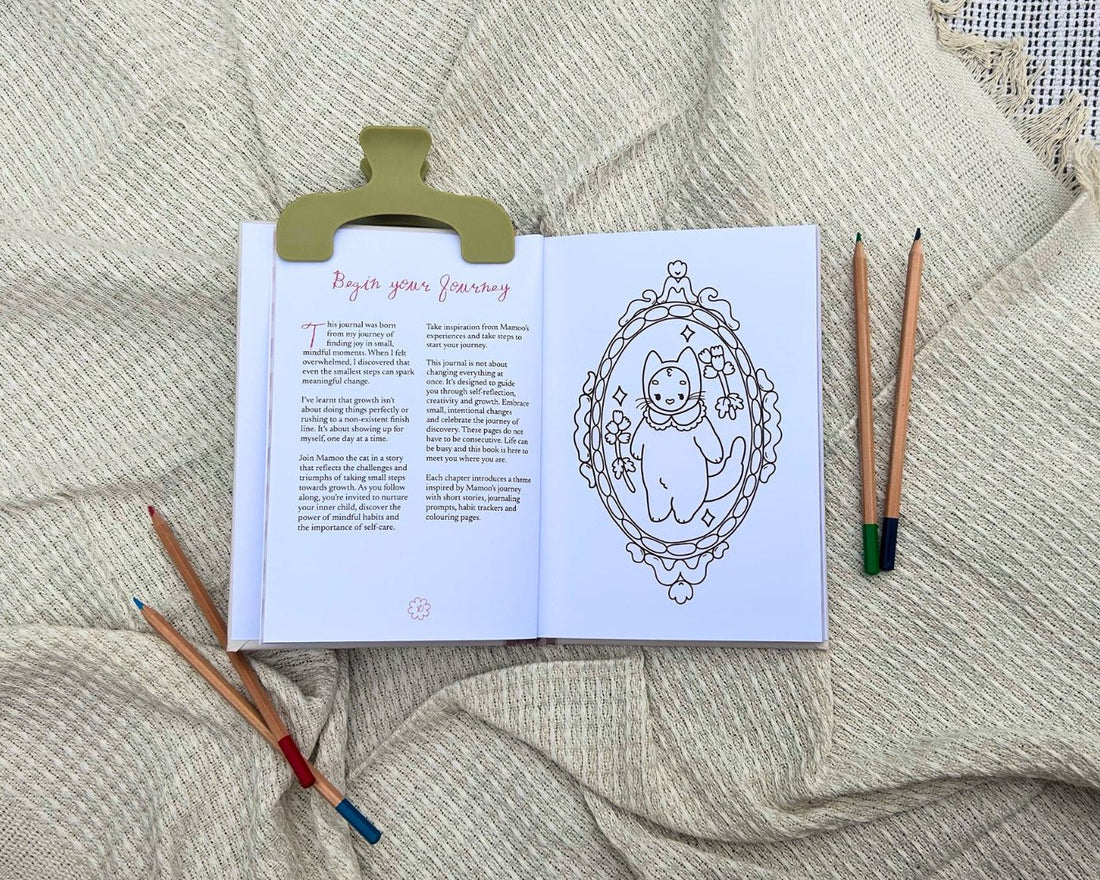 Begin your Journey
This journal was born
from my journey of
finding joy in small,
mindful moments. When I felt
overwhelmed, I discovered that
even the smallest steps can spark
meaningful change.
I've learnt that growth isn't
about doing things perfectly or
rushing to a non-existent finish
line. It's about showing up for
myself, one day at a time.
Join Mamoo the cat in a story
that reflects the challenges and
triumphs of taking small steps
towards growth. As you follow
along, you're invited to nurture
your inner child, discover the
power of mindful habits and
the importance of self-care.
Take inspiration from Mamoo's
experiences and take steps to
start your journey.
This journal is not about
changing everything at
once. It's designed to guide
you through self-reflection,
creativity and growth. Embrace
small, intentional changes
and celebrate the journey of
discovery. These pages do not
have to be consecutive. Life can
be busy and this book is here to
meet you where you are.
Each chapter introduces a theme
inspired by Mamoo's journey
with short stories, journaling
prompts, habit trackers and
colouring pages.